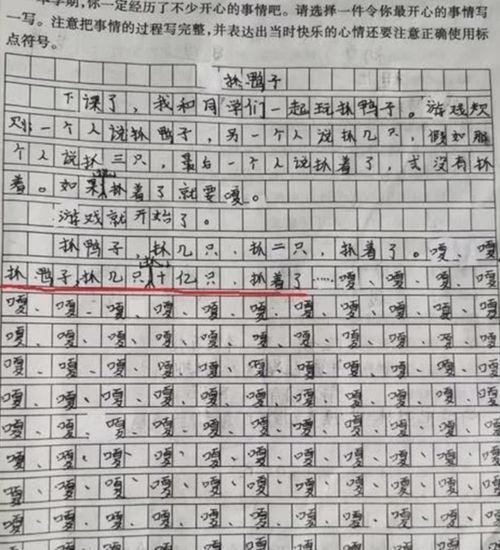 学期,你一定经历了不少开心的事情吧。请选择一件令你最开心的事情写
一写。注意把事情的过程写完整,并表达出当时快乐的心情还要注意正确使用标
点符号。
抓鸭子
下课了，我和同学们一起玩抓鸭子。游戏规
则：一个人说抓鸭子，另一个人说抓几只，假如那
个人说抓三只，最后一个人说抓着了，或没有抓
着。如果抓着了就要嘎。
游戏就开始了。
抓鸭子，抓几只，抓二只，抓着了。嘎、嘎、
抓鸭子，抓几只，抓十亿只，抓着了……嘎、嘎、嘎、嘎、
嘎、嘎、嘎、嘎、嘎、嘎、嘎、嘎、嘎、嘎、嘎
嘎、嘎、嘎、嘎、嘎、嘎、嘎、嘎、嘎、嘎、嘎
嘎、嘎、嘎、嘎、嘎、嘎、嘎、嘎、嘎、嘎、嘎
嘎、嘎、嘎、嘎、嘎、嘎、嘎、嘎、嘎、嘎、嘎
嘎、嘎、嘎、嘎、嘎、嘎、嘎、嘎、嘎、嘎、嘎
嘎、嘎、嘎、嘎、嘎、嘎、嘎、嘎、嘎、嘎、嘎
嘎、嘎、嘎、嘎、嘎、嘎、嘎、嘎、嘎、嘎、嘎
嘎、嘎、嘎、嘎、嘎、嘎、嘎、嘎、嘎、嘎、嘎